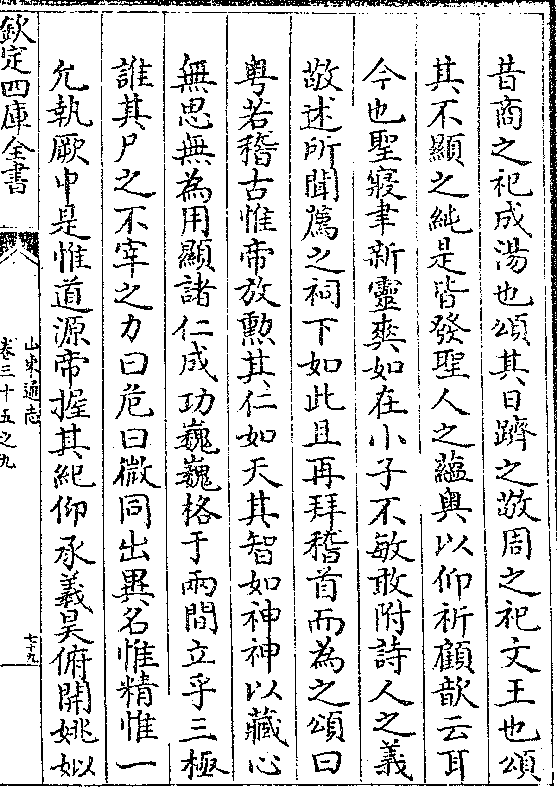 昔商之祀成湯也頌其日躋之敬周之祀文王也頌
其不顯之純是皆發聖人之蘊奥以仰祈顧歆云耳
今也聖寢聿新靈爽如在小子不敏敢附詩人之義
敬述所聞薦之祠下如此且再拜稽首而為之頌曰
粤若稽古惟帝放勲其仁如天其智如神神以藏心
無思無為用顯諸仁成功巍巍格于兩間立乎三極
誰其尸之不宰之力曰危曰微同出異名惟精惟一
允執厥中是惟道源帝握其紀仰承羲昊俯開姚姒
欽定四庫全書
山東通志
卷三十五之九
七十九